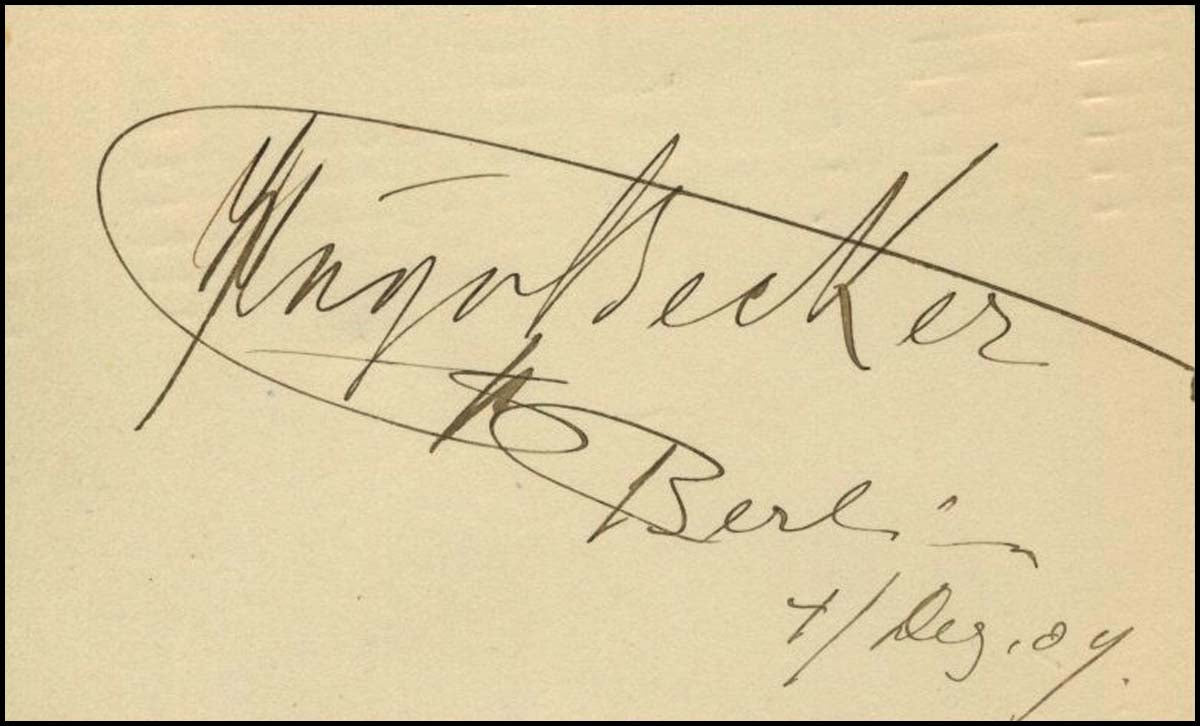 Hugo Becker
Berlin
4/ Dez. 09.